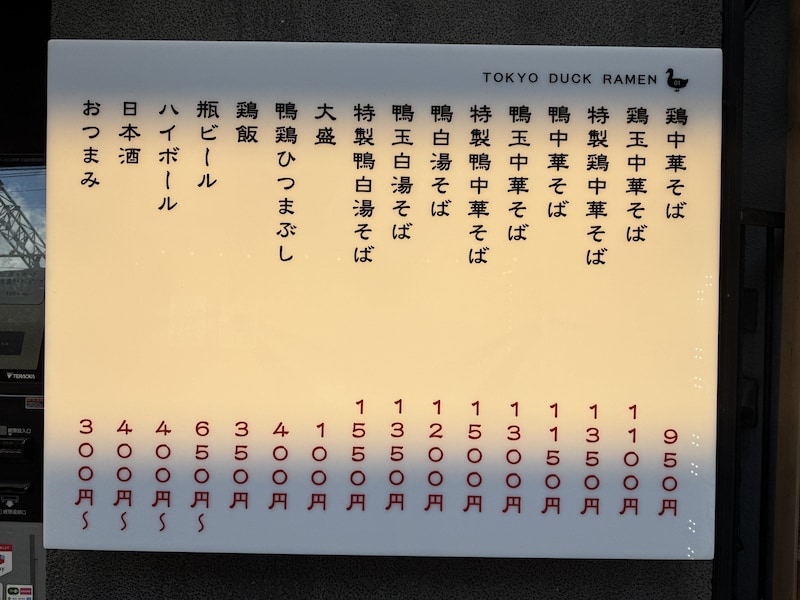 TOKYO DUCK RAMEN
鶏中華そば 950円
鶏玉中華そば 1100円
特製鶏中華そば 1350円
鴨中華そば 1150円
鴨玉中華そば 1300円
特製鴨中華そば 1500円
鴨白湯そば 1200円
鴨玉白湯そば 1350円
特製鴨白湯そば 1550円
大盛 100円
鴨鶏ひつまぶし 400円
鶏飯 350円
瓶ビール 650円〜
ハイボール 400円〜
日本酒 400円〜
おつまみ 300円〜